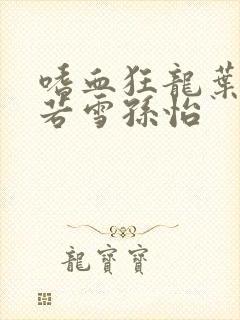 嗜血狂龍葉
若雪孫怡
龍寶寶